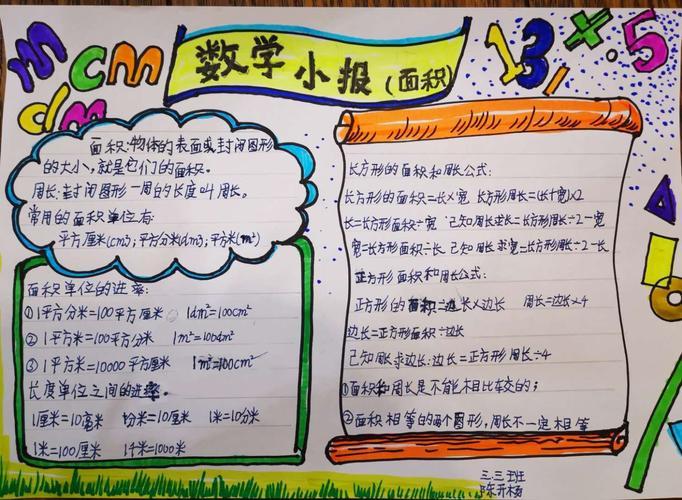 m cm
dm
数学小报(面积)
13 × . 5
面积:物体的表面或封闭图形
的大小,就是它们的面积。
周长:封闭图形一周的长度叫周长。
常用的面积单位有:
平方厘米(cm³;平方分米(dm³;平方米(m²)
面积单位的进率:
①1平方分米=100平方厘米。 1dm²=100cm²
②1平方米=100平方分米 1m²=100dm²
③1平方米=10000平方厘米 1m²=100cm²
长度单位之间的进率。
1厘米=10毫米 1分米=10厘米 1米=10分米
1米=100厘米 1千米=1000米
长方形的面积和周长公式:
长方形的面积=长×宽 长方形周长=(长+宽)×2
长=长方形面积÷宽 已知周长求长=长方形周长÷2-宽
宽=长方形面积÷长 已知周长求宽=长方形周长÷2-长
正方形面积和周长公式:
正方形的面积=边长×边长 周长=边长×4
边长=正方形面积÷边长
已知周长求边长:边长=正方形周长÷4
①面积和周长是不能相比较的;
②面积相等的两个图形,周长不一定相等
三.三班
陈开杨